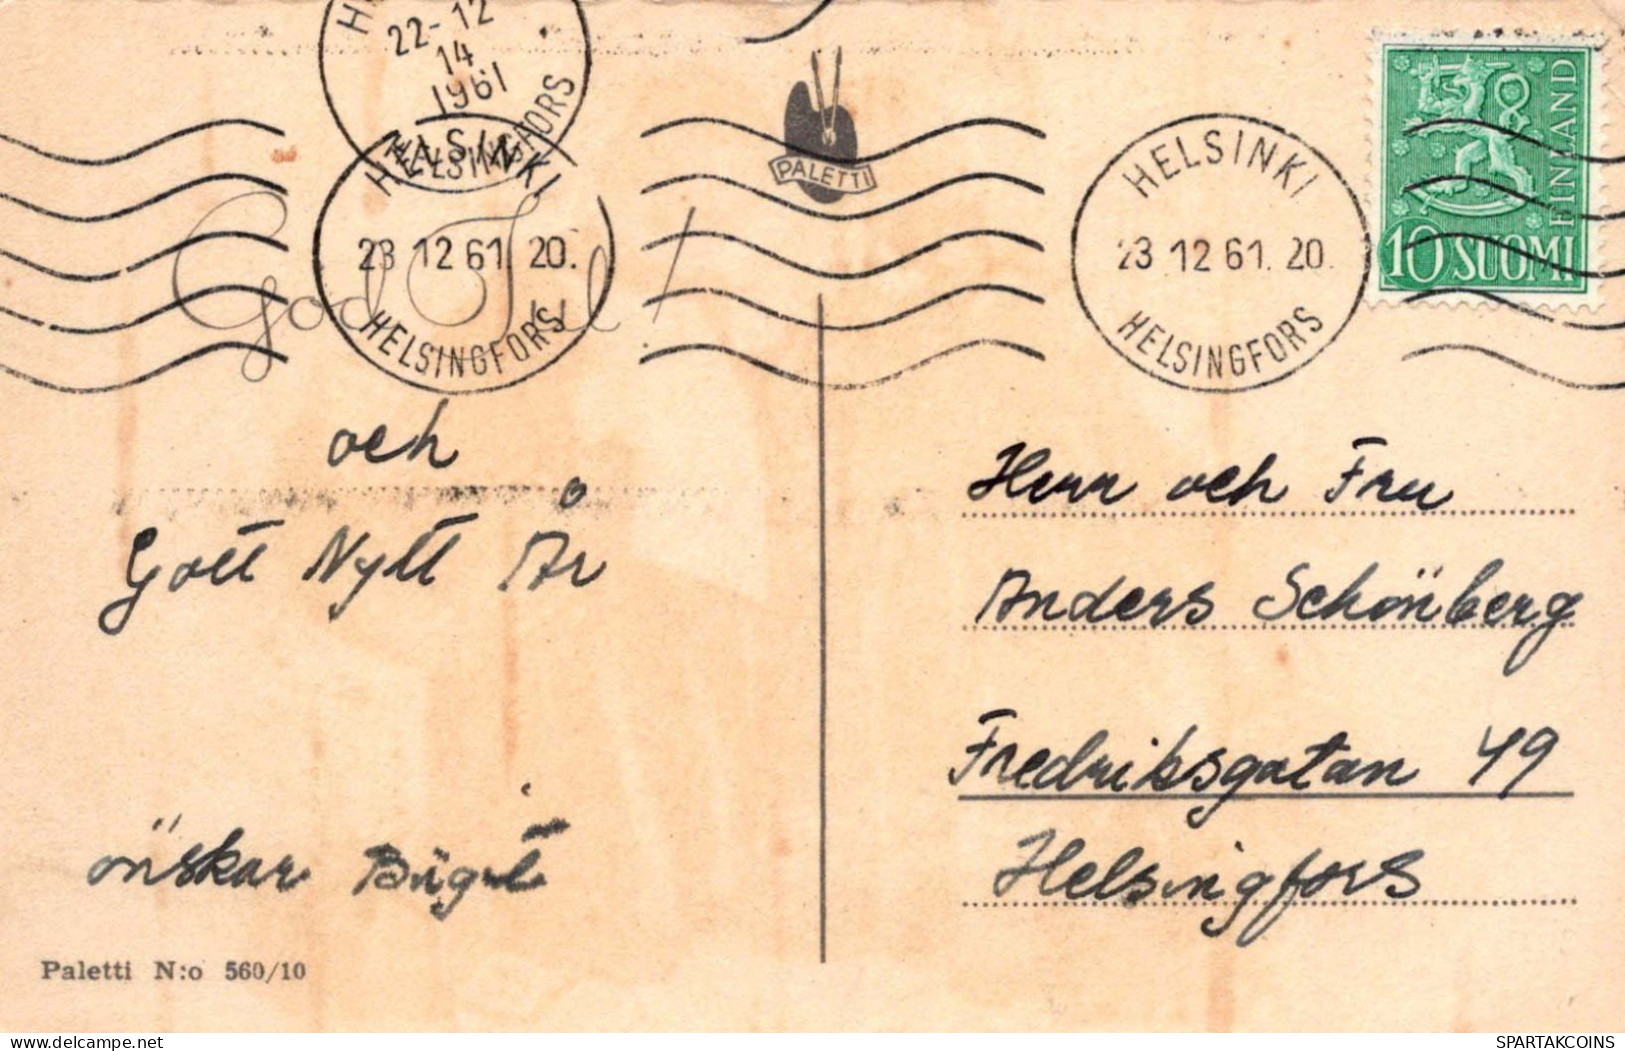 22-12
14
1961
HELSINGFORS
HELSINKI
23 12 61. 20.
HELSINGFORS
PALETTI
HELSINKI
23 12 61. 20.
HELSINGFORS
FINLAND
10 SUOMI
God Jul!
och
Gott Nytt År
önskar
Paletti N:o 560/10
Herr och Fru
Anders Schönberg
Fredriksgatan 49
Helsingfors
SPARTAKCOINS